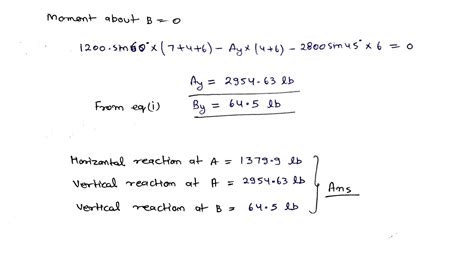 Moment about B = 0
1200·sin60° × (7+4+6) - Ay × (4+6) - 2800 sin45° × 6 = 0
Ay = 2954·63 lb
From eq(i) By = 64·5 lb
Horizontal reaction at A = 1379·9 lb
Vertical reaction at A = 2954·63 lb
Vertical reaction at B = 64·5 lb
Ans